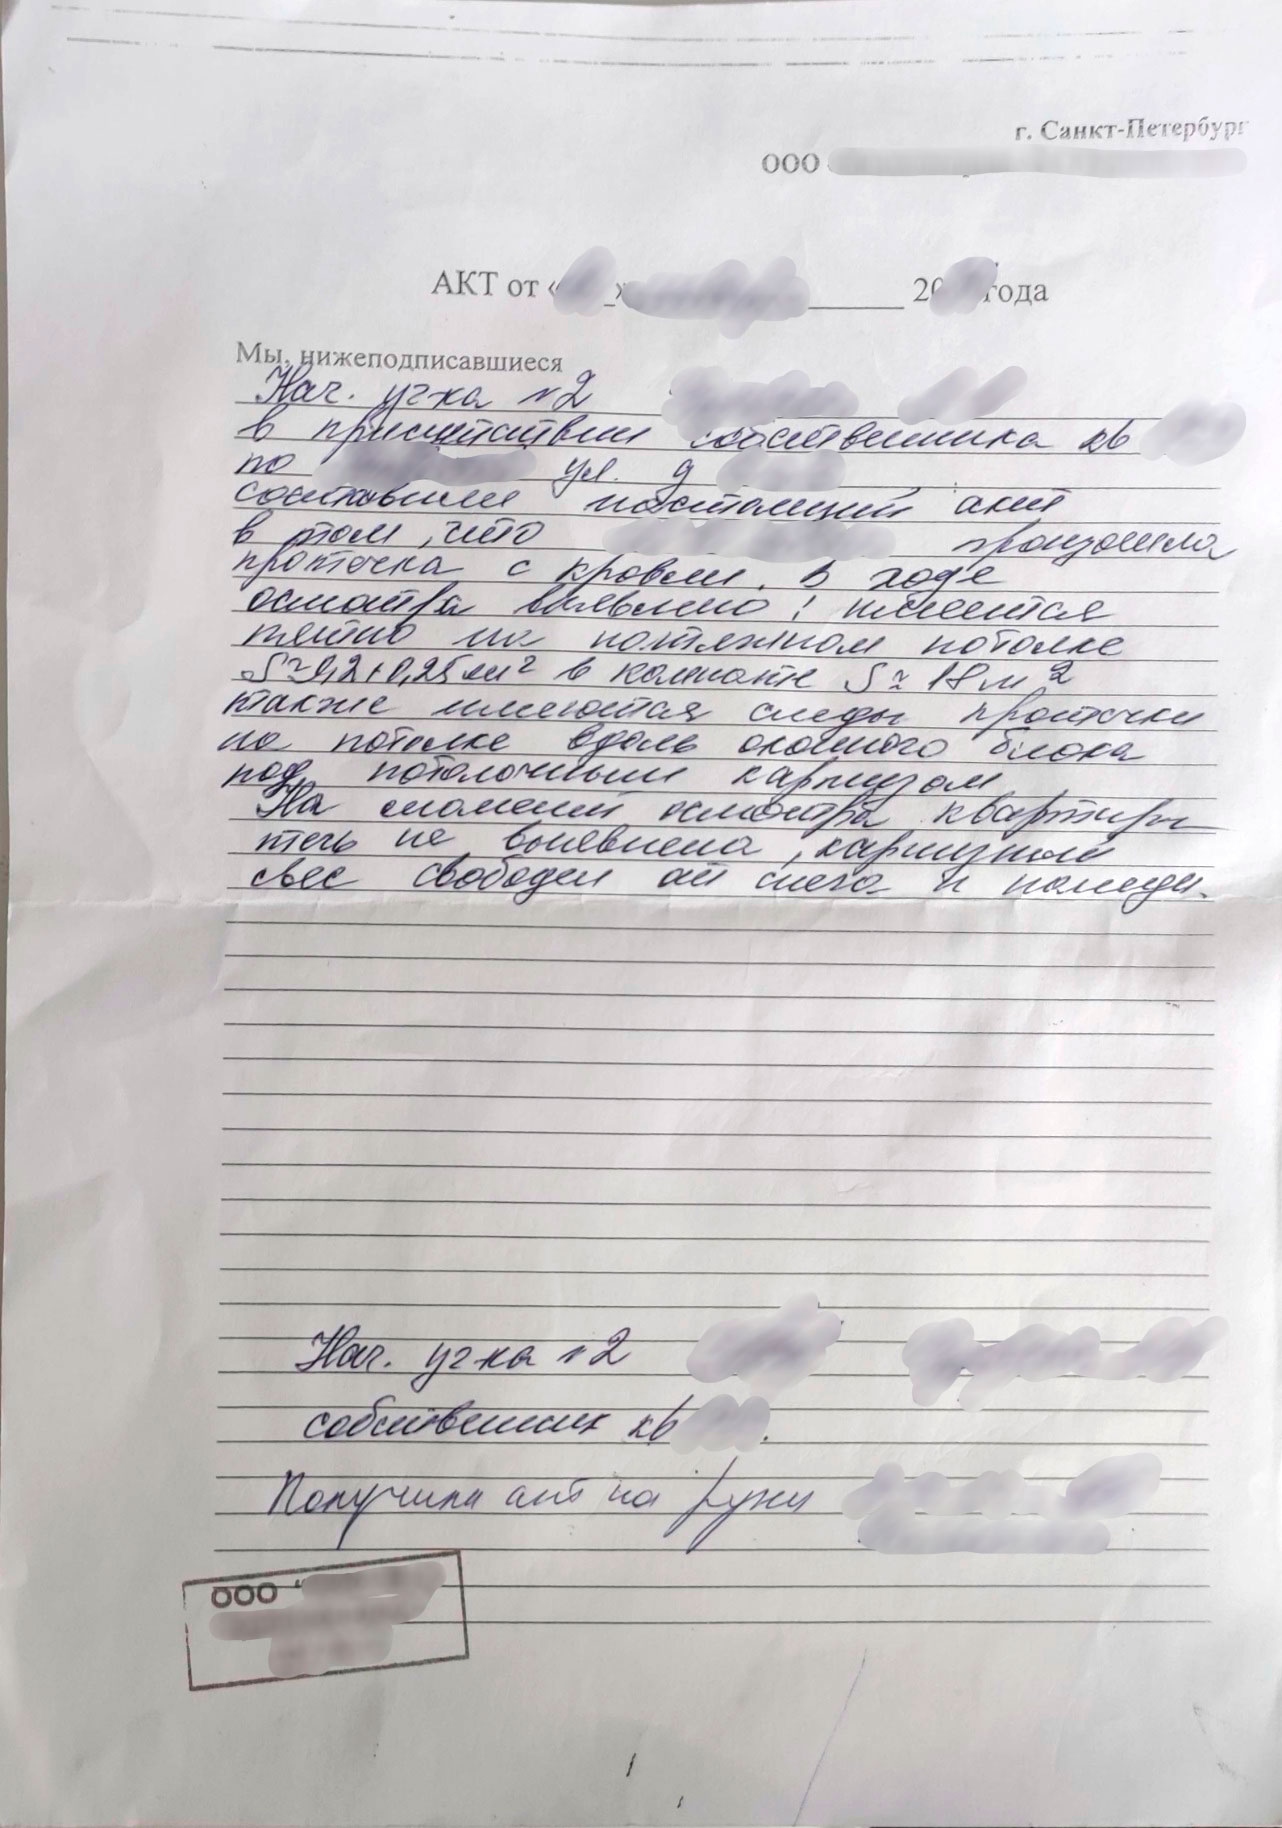 г. Санкт-Петербург
ООО
АКТ от « » 20 года
Мы, нижеподписавшиеся
Нач. уч-ка №2
в присутствии собственника кв
по ул. д
составили настоящий акт
в том, что произошла
протечка с кровли. В ходе
осмотра выявлено: имеется
пятно на натяжном потолке
S≈0,2+0,25 м² в комнате S≈18 м2
также имеются следы протечки
на потолке вдоль оконного блока
под потолочным карнизом
На момент осмотра квартиры
течь не выявлена, карнизный
свес свободен от снега и наледи.
Нач. уч-ка №2
собственник кв .
Получила акт на руки
ООО "